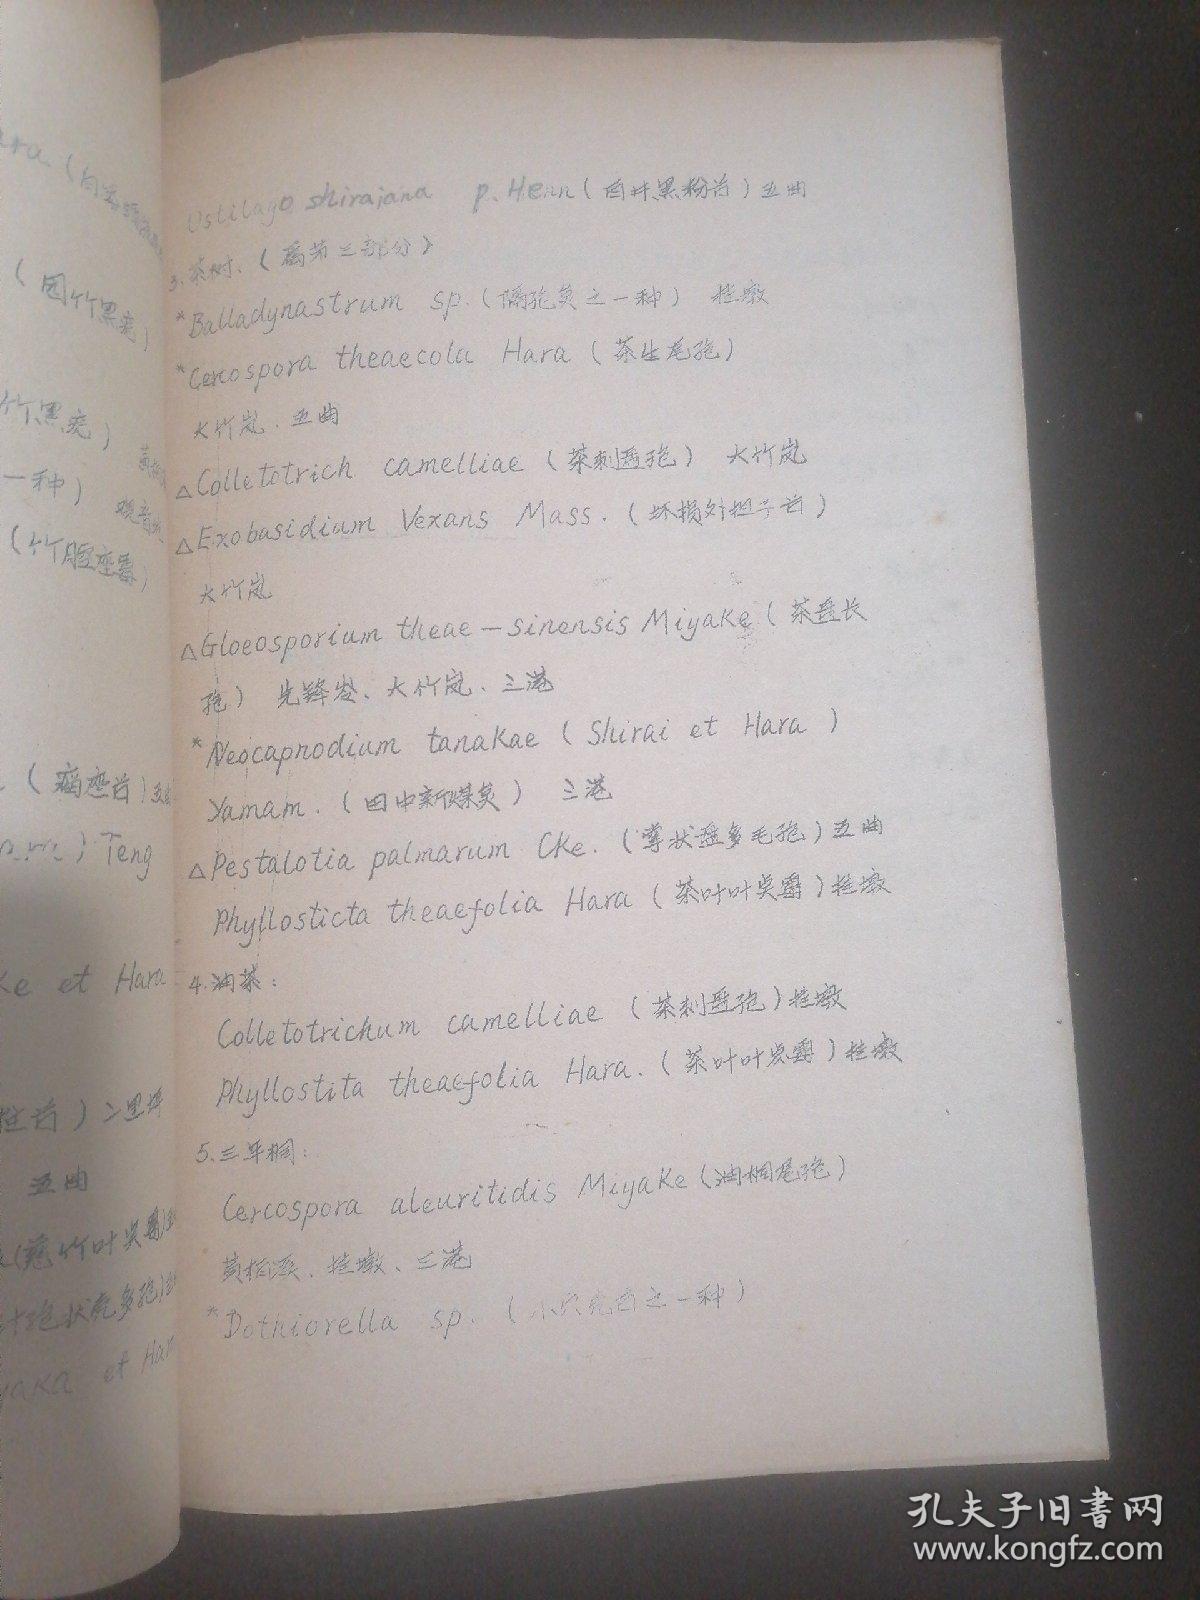 ara (白
(园竹黑壳)
竹黑壳)
一种)
(竹腔座霉)
(痂痣菌)
) Teng
Ke et Hara
二里坪
五曲
(慈竹叶点霉)
壳多孢)
yaka et Har
Ustilago shiraiana P. Henn (白井黑粉菌) 五曲
3. 茶树、(属第三部分)
*Balladynastrum sp. (隔孢炱之一种) 挂墩
*Cercospora theaecola Hara (茶生尾孢)
大竹岚、五曲
△Colletotrich camelliae (茶刺盘孢) 大竹岚
△Exobasidium Vexans Mass. (坏损外担子菌)
大竹岚
△Gloeosporium theae-sinensis Miyake (茶盘长
孢) 先锋岭、大竹岚、三港
*Neocapnodium tanakae (Shirai et Hara)
Yamam. (田中新煤炱) 三港
△Pestalotia palmarum Cke. (掌状盘多毛孢) 五曲
Phyllosticta theaefolia Hara (茶叶叶点霉) 挂墩
4. 油茶:
Colletotrichum camelliae (茶刺盘孢) 挂墩
Phyllostita theaefolia Hara. (茶叶叶点霉) 挂墩
5. 三年桐:
Cercospora aleuritidis Miyake (油桐尾孢)
黄柏溪、挂墩、三港
*Dothiorella sp. (小穴壳菌之一种)
孔夫子旧书网
www.kongfz.com